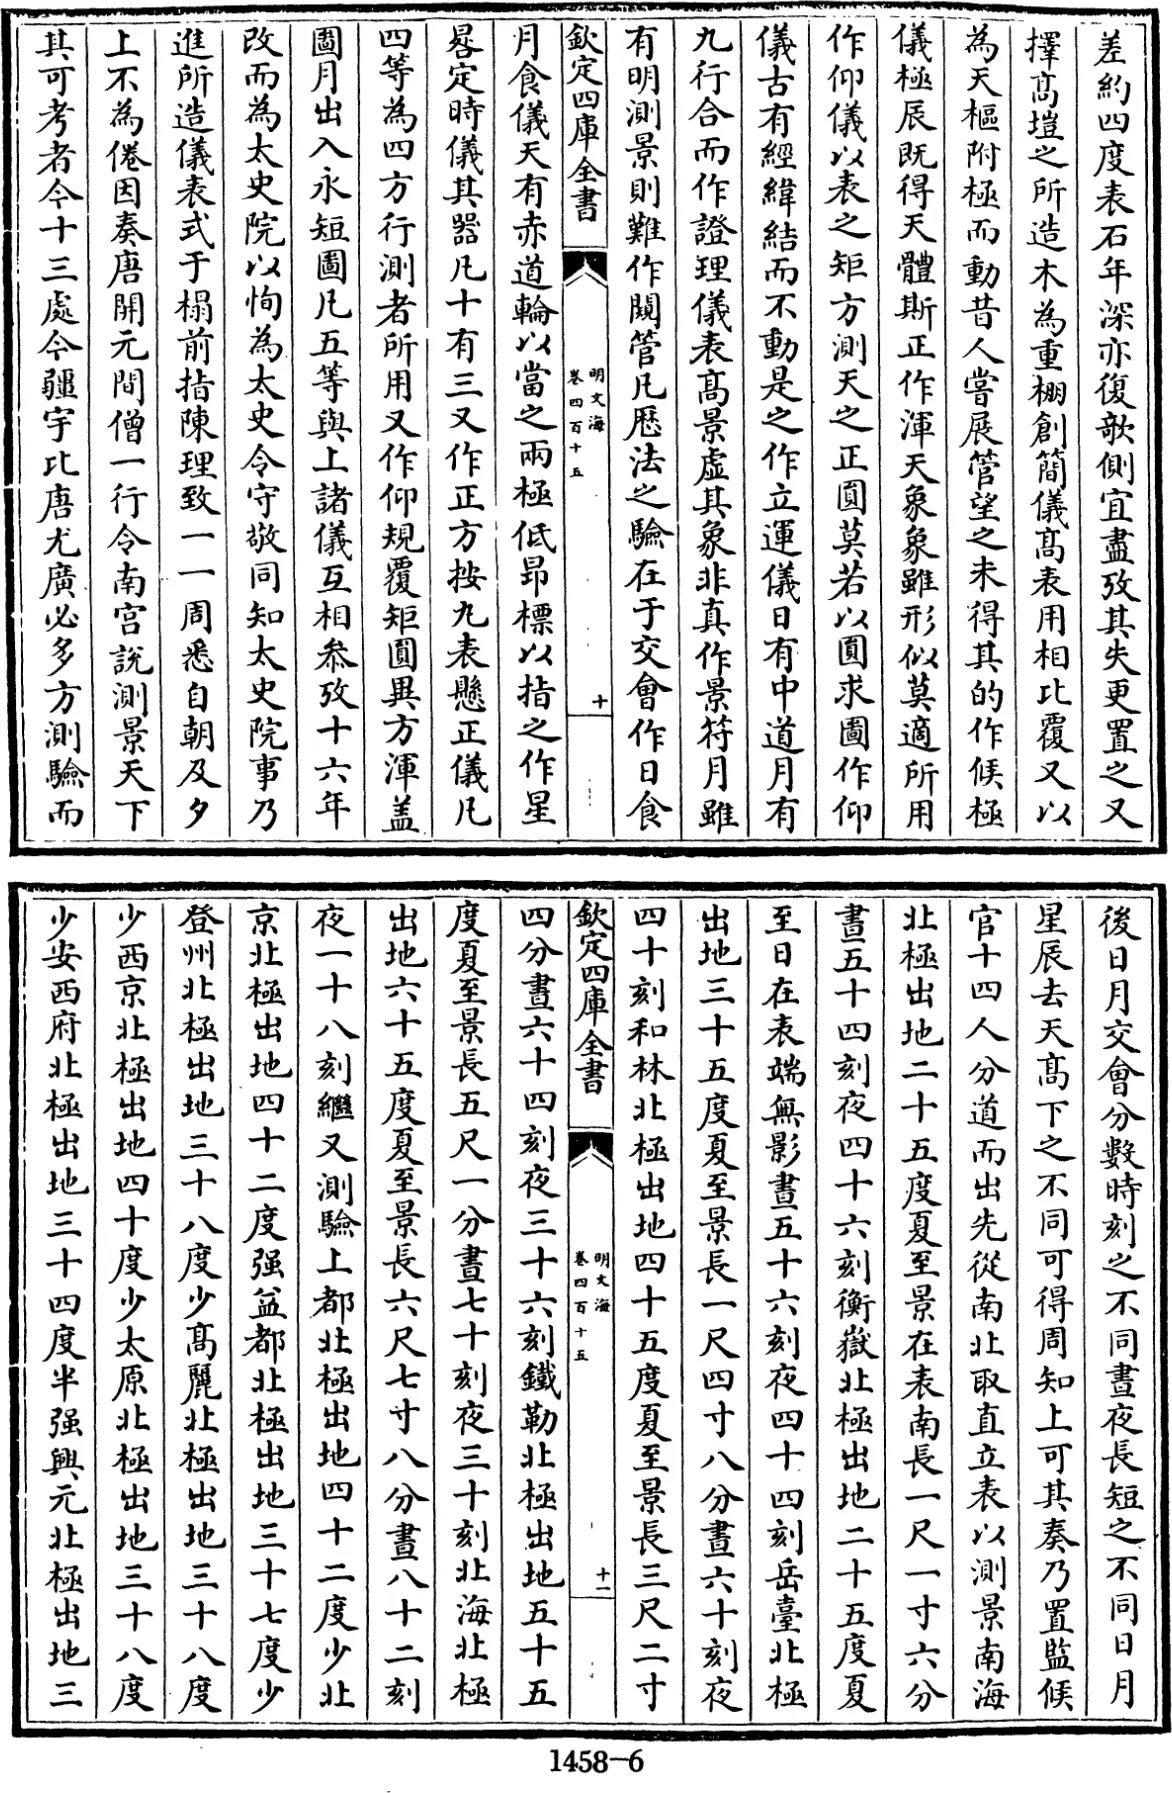 差約四度表石年深亦復欹側宜盡攷其失更置之又
擇高塏之所造木為重棚創簡儀高表用相比覆又以
為天樞附極而動昔人嘗展管望之未得其的作候極
儀極辰既得天體斯正作渾天象象雖形似莫適所用
作仰儀以表之矩方測天之正圓莫若以圓求圖作仰
儀古有經緯結而不動是之作立運儀日有中道月有
九行合而作證理儀表高景虛其象非真作景符月雖
有明測景則難作闚管凡歷法之驗在于交會作日食
欽定四庫全書
明文海
卷四百十五
十
月食儀天有赤道輪以當之兩極低昂標以指之作星
晷定時儀其器凡十有三又作正方按九表懸正儀凡
四等為四方行測者所用又作仰規覆矩圓異方渾蓋
圖月出入永短圖凡五等與上諸儀互相參攷十六年
改而為太史院以恂為太史令守敬同知太史院事乃
進所造儀表式于榻前指陳理致一一周悉自朝及夕
上不為倦因奏唐開元間僧一行令南宮說測景天下
其可考者今十三處今疆宇比唐尤廣必多方測驗而
後日月交會分數時刻之不同晝夜長短之不同日月
星辰去天高下之不同可得周知上可其奏乃置監候
官十四人分道而出先從南北取直立表以測景南海
北極出地二十五度夏至景在表南長一尺一寸六分
晝五十四刻夜四十六刻衡嶽北極出地二十五度夏
至日在表端無影晝五十六刻夜四十四刻岳臺北極
出地三十五度夏至景長一尺四寸八分晝六十刻夜
四十刻和林北極出地四十五度夏至景長三尺二寸
欽定四庫全書
明文海
卷四百十五
十一
四分晝六十四刻夜三十六刻鐵勒北極出地五十五
度夏至景長五尺一分晝七十刻夜三十刻北海北極
出地六十五度夏至景長六尺七寸八分晝八十二刻
夜一十八刻繼又測驗上都北極出地四十二度少北
京北極出地四十二度强益都北極出地三十七度少
登州北極出地三十八度少高麗北極出地三十八度
少西京北極出地四十度少太原北極出地三十八度
少安西府北極出地三十四度半强興元北極出地三
1458-6